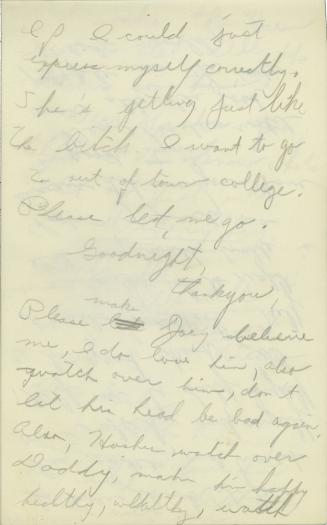 If I could just
express myself correctly.
She's getting just like
the bitch I want to go
to out of town college.
Please let me go.
Goodnight,
thankyou,
make
Please Joey believe
me, I do love him, also
watch over him, don't
let his head be bad again.
Also, watch over
Daddy, make him happy
healthy, wealthy, watch